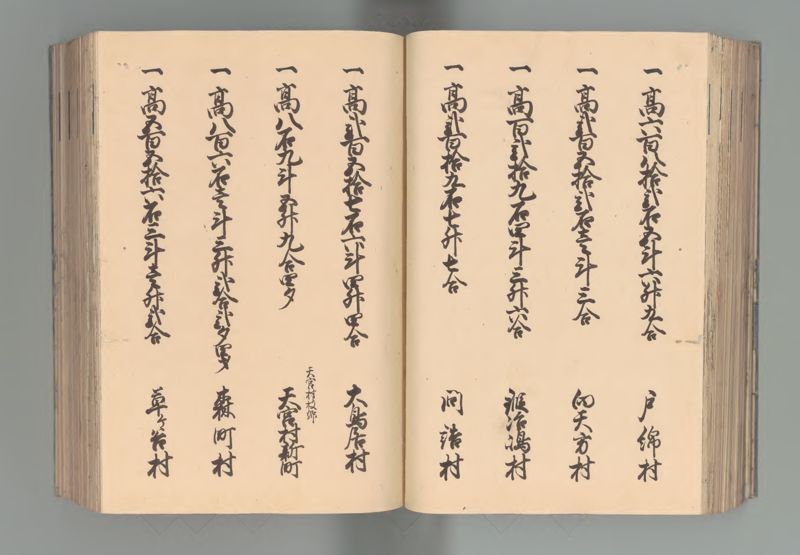 一 高六百八拾弐石五斗六升九合 戸綿村
一 高弐百五拾弐石壱斗三合 向天方村
一 高百弐拾九石四斗三升六合 鍛冶嶋村
一 高弐百拾九石七升七合 問詰村
一 高弐百五拾七石六斗四升四合 大鳥居村
天宮村枝郷
一 高八石九斗五升九合四夕 天宮村新町
一 高八百六石壱斗三升弐合弐夕四才 森町村
一 高五百五拾六石三斗壱升弐合 草ヶ谷村